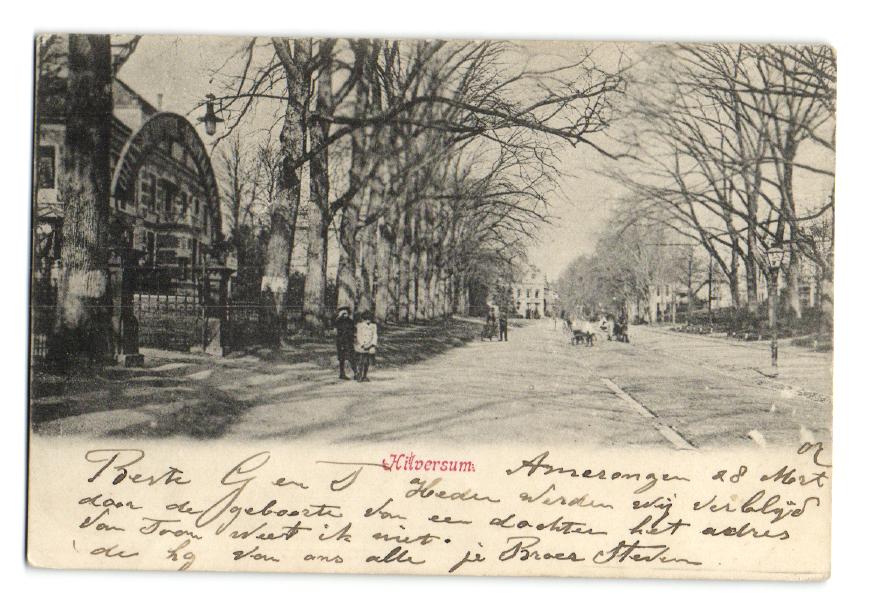 Hilversum
02
Beste G en T Amerongen 28 Mort
Heden werden wij verblijd
door de geboorte van een dochter het adres
van Toon weet ik niet.
de hg van ons alle je Broer Steven